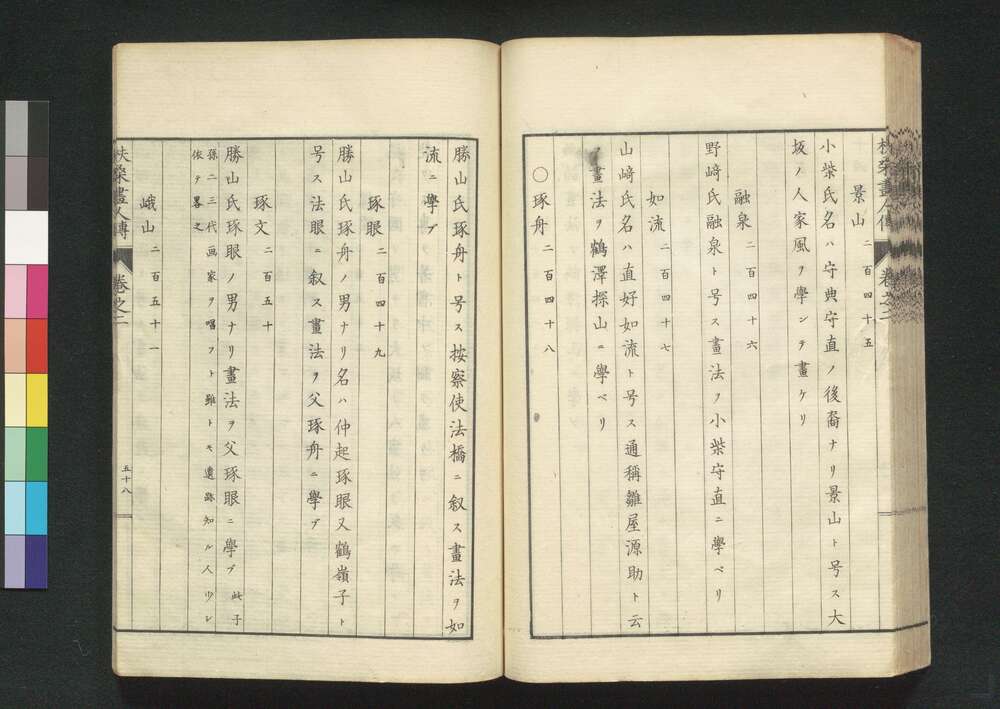 扶桑畫人傳 卷之二
景山 二百四十五
小柴氏名ハ守典守直ノ後裔ナリ景山ト号ス大
坂ノ人家風ヲ學ンテ畫ケリ
融泉 二百四十六
野﨑氏融泉ト号ス畫法ヲ小柴守直ニ學ベリ
如流 二百四十七
山﨑氏名ハ直好如流ト号ス通稱雛屋源助ト云
フ畫法ヲ鶴澤探山ニ學ベリ
○琢舟 二百四十八
勝山氏琢舟ト号ス按察使法橋ニ叙ス畫法ヲ如
流ニ學ブ
琢眼 二百四十九
勝山氏琢舟ノ男ナリ名ハ仲起琢眼又鶴嶺子ト
号ス法眼ニ叙ス畫法ヲ父琢舟ニ學ブ
琢文 二百五十
勝山氏琢眼ノ男ナリ畫法ヲ父琢眼ニ學ブ此子
孫二三代画家ヲ唱フト雖トモ遺跡知ル人少レ
依テ畧之
峨山 二百五十一
扶桑畫人傳 卷之二 五十八